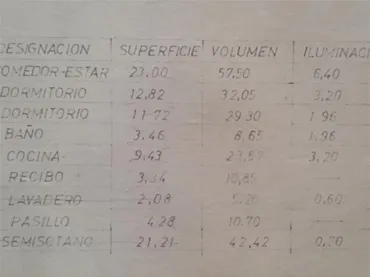 DESIGNACION SUPERFICIE VOLUMEN ILUMINACI
COMEDOR-ESTAR 23,00 57,50 6,40
DORMITORIO 12,82 32,05 3,20
DORMITORIO 11,72 29,30 1,96
BAÑO 3,46 8,65 1,96
COCINA 9,43 23,57 3,20
RECIBO 3,34 10,85 —
LAVADERO 2,08 5,20 0,60
PASILLO 4,28 10,70 —
SEMISOTANO 21,21 42,42